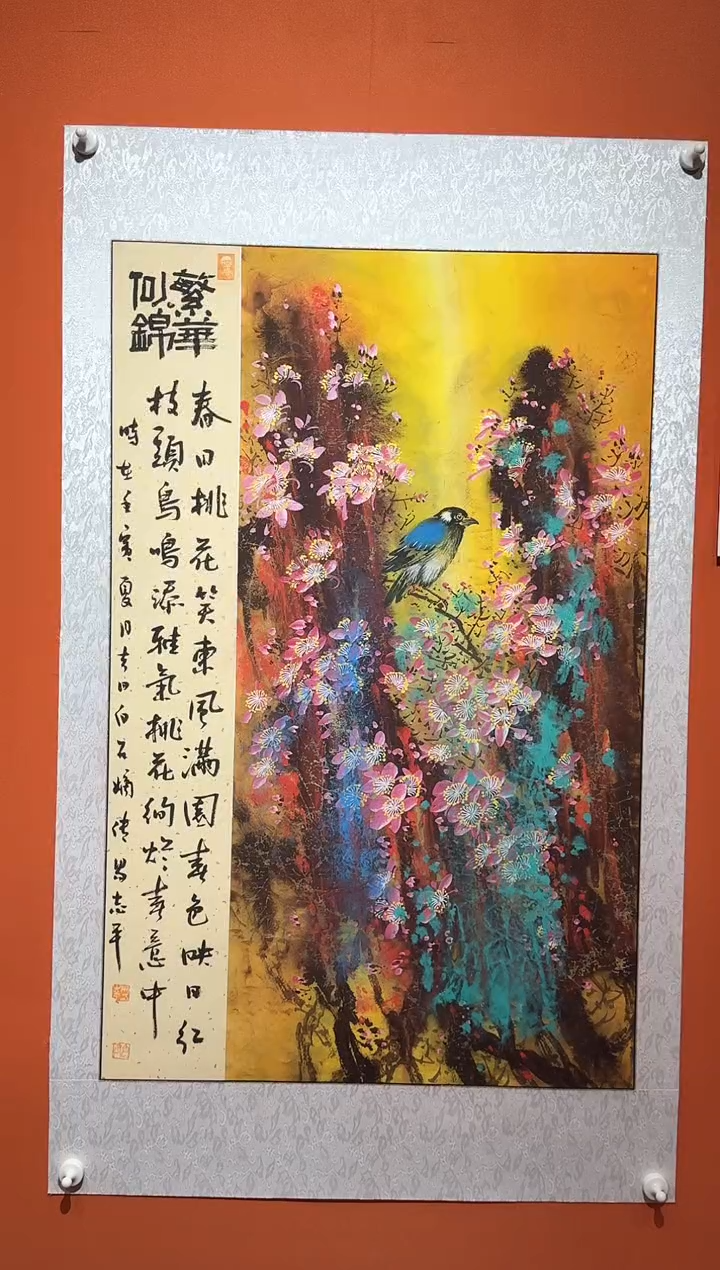 繁華
似錦
春日桃花笑東風滿園春色映日红
枝頭鳥鳴添雅氣桃花絢烂春意中
時在壬寅夏月吉日白石嫡传志平